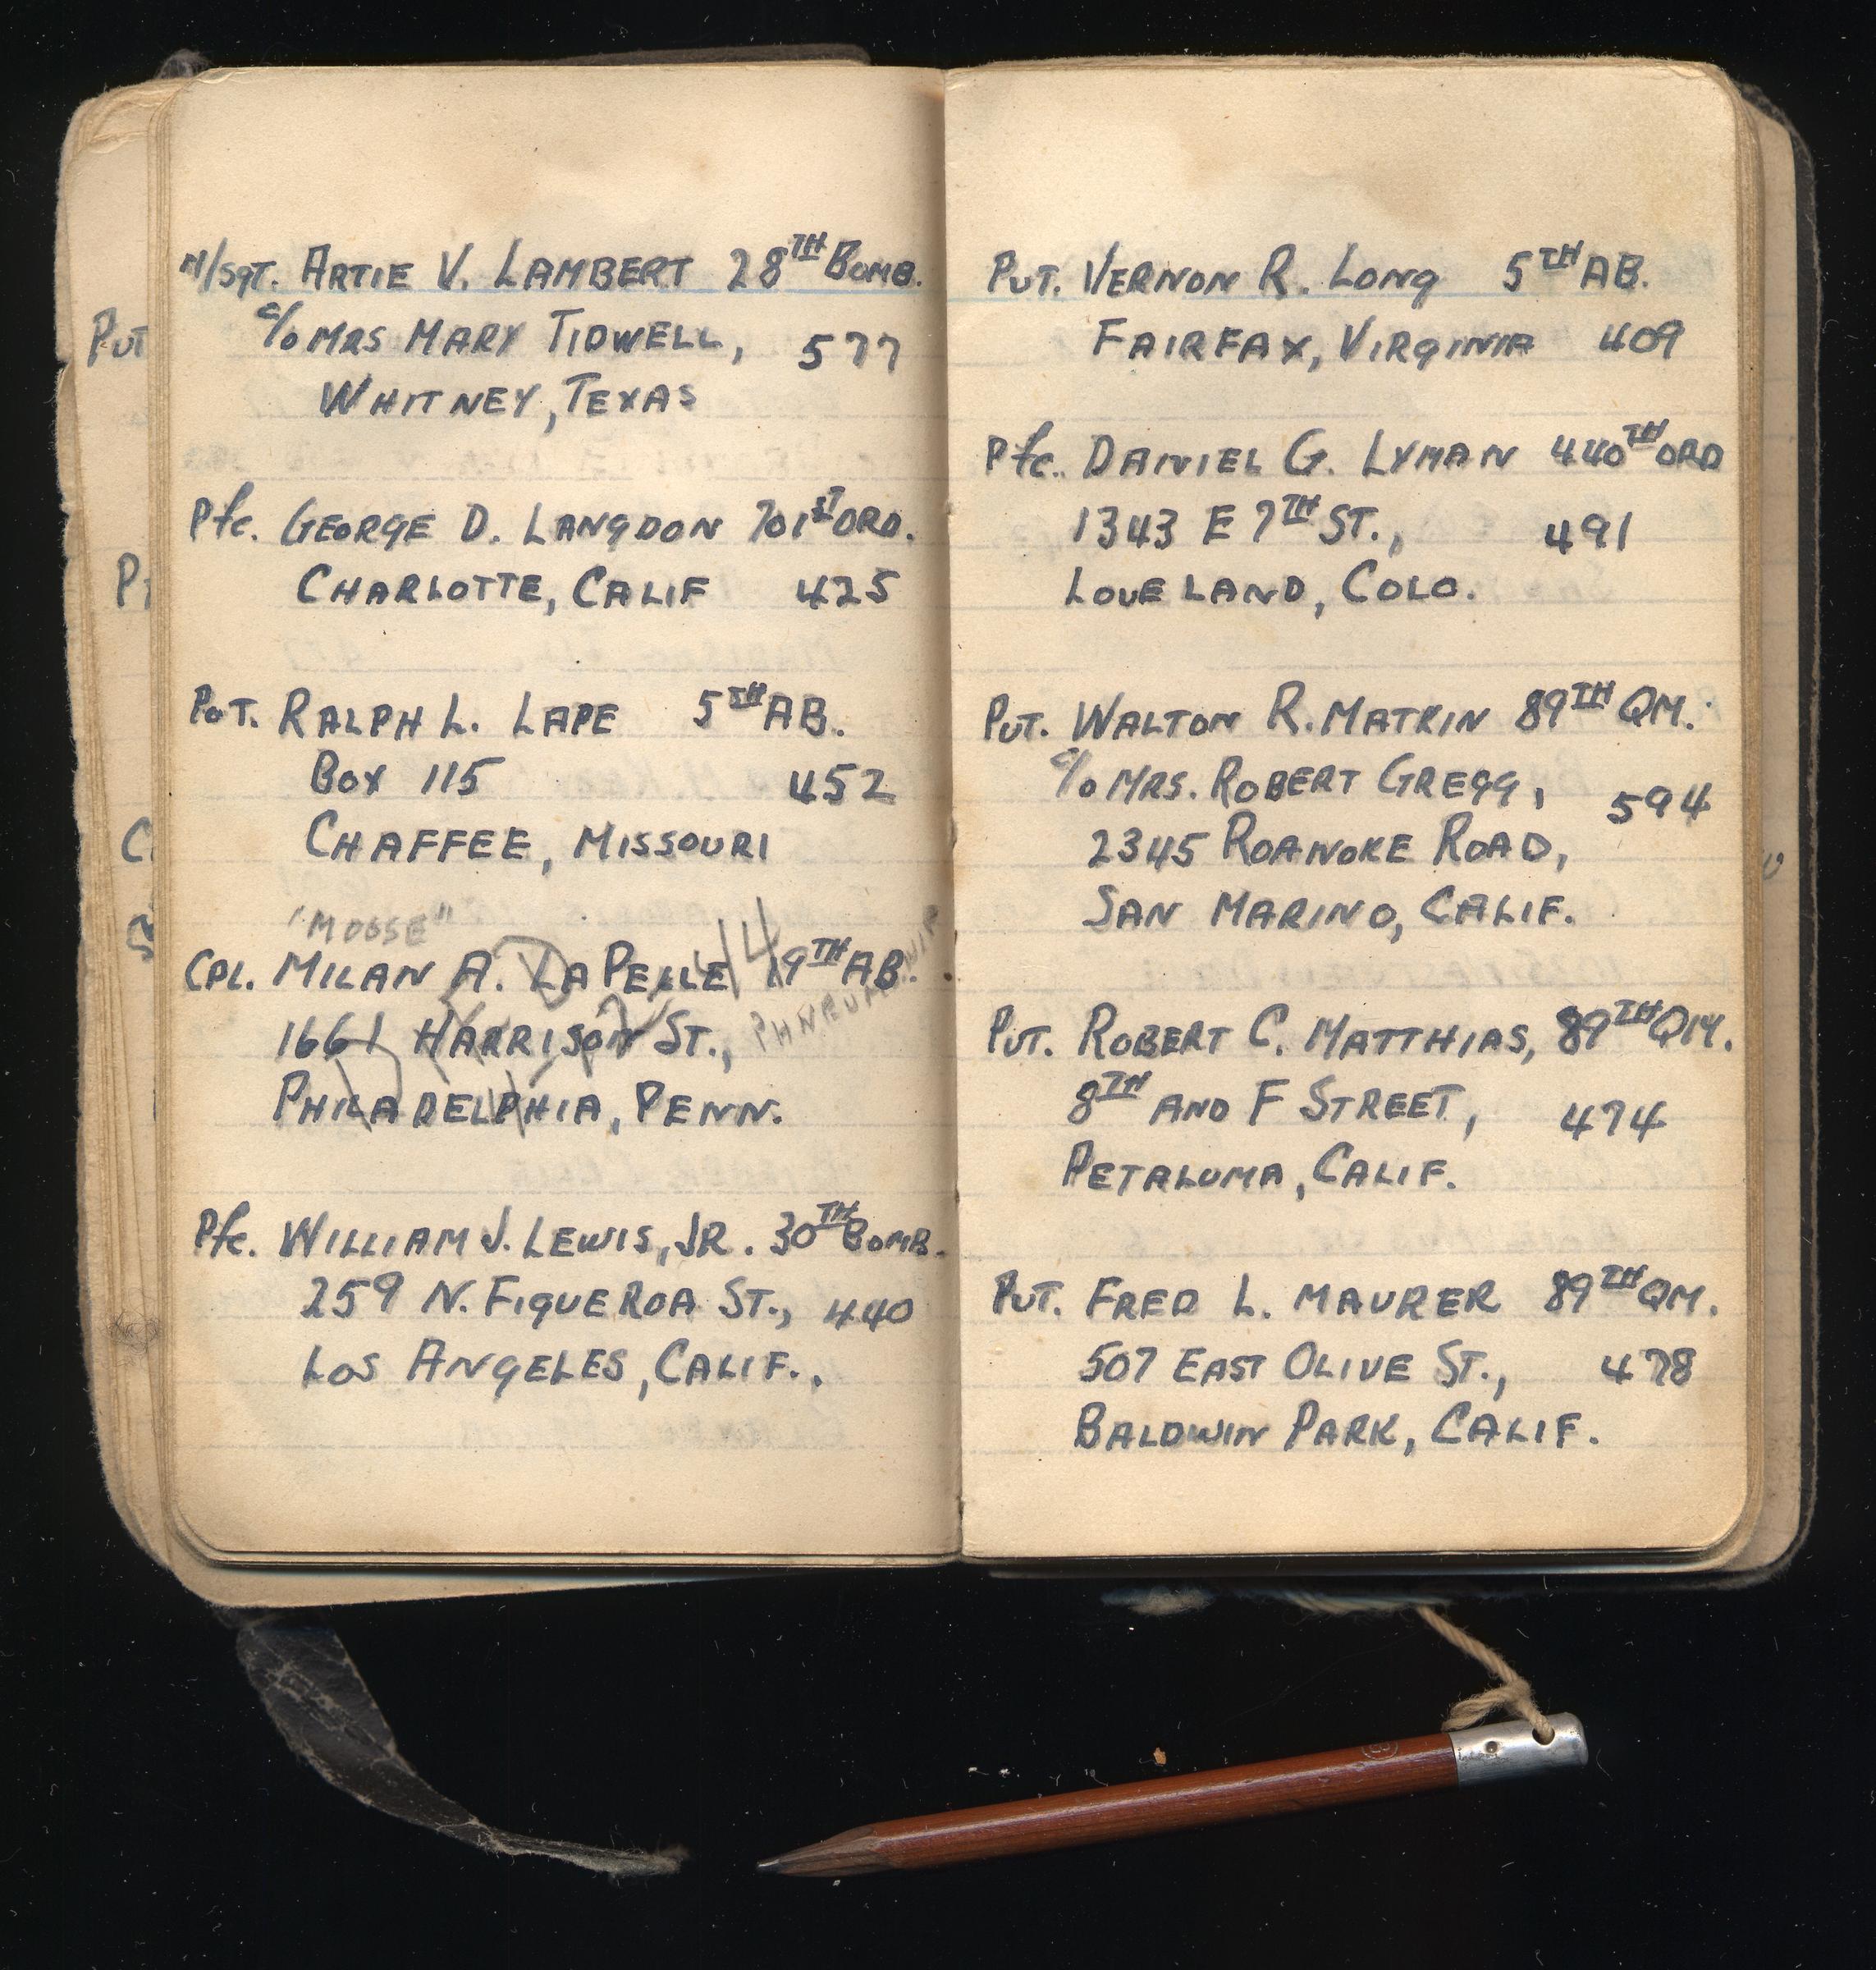 M/Sgt. ARTIE V. LAMBERT 28TH BOMB.
c/o MRS MARY TIDWELL, 577
WHITNEY, TEXAS
Pfc. GEORGE D. LANGDON 701ST ORD.
CHARLOTTE, CALIF 425
PVT. RALPH L. LAPE 5TH AB.
BOX 115 452
CHAFFEE, MISSOURI
"MOOSE"
CPL. MILAN A. LAPELLE 19TH AB.
1661 HARRISON ST.,
PHILADELPHIA, PENN.
Pfc. WILLIAM J. LEWIS, JR. 30TH BOMB.
259 N. FIGUEROA ST., 440
LOS ANGELES, CALIF.
PVT. VERNON R. LONG 5TH AB.
FAIRFAX, VIRGINIA 409
Pfc. DANIEL G. LYMAN 440TH ORD
1343 E 7TH ST., 491
LOVELAND, COLO.
PVT. WALTON R. MATKIN 89TH QM.
c/o MRS. ROBERT GREGG, 594
2345 ROANOKE ROAD,
SAN MARINO, CALIF.
PVT. ROBERT C. MATTHIAS, 89TH QM.
8TH AND F STREET, 474
PETALUMA, CALIF.
PVT. FRED L. MAURER 89TH QM.
507 EAST OLIVE ST., 478
BALDWIN PARK, CALIF.